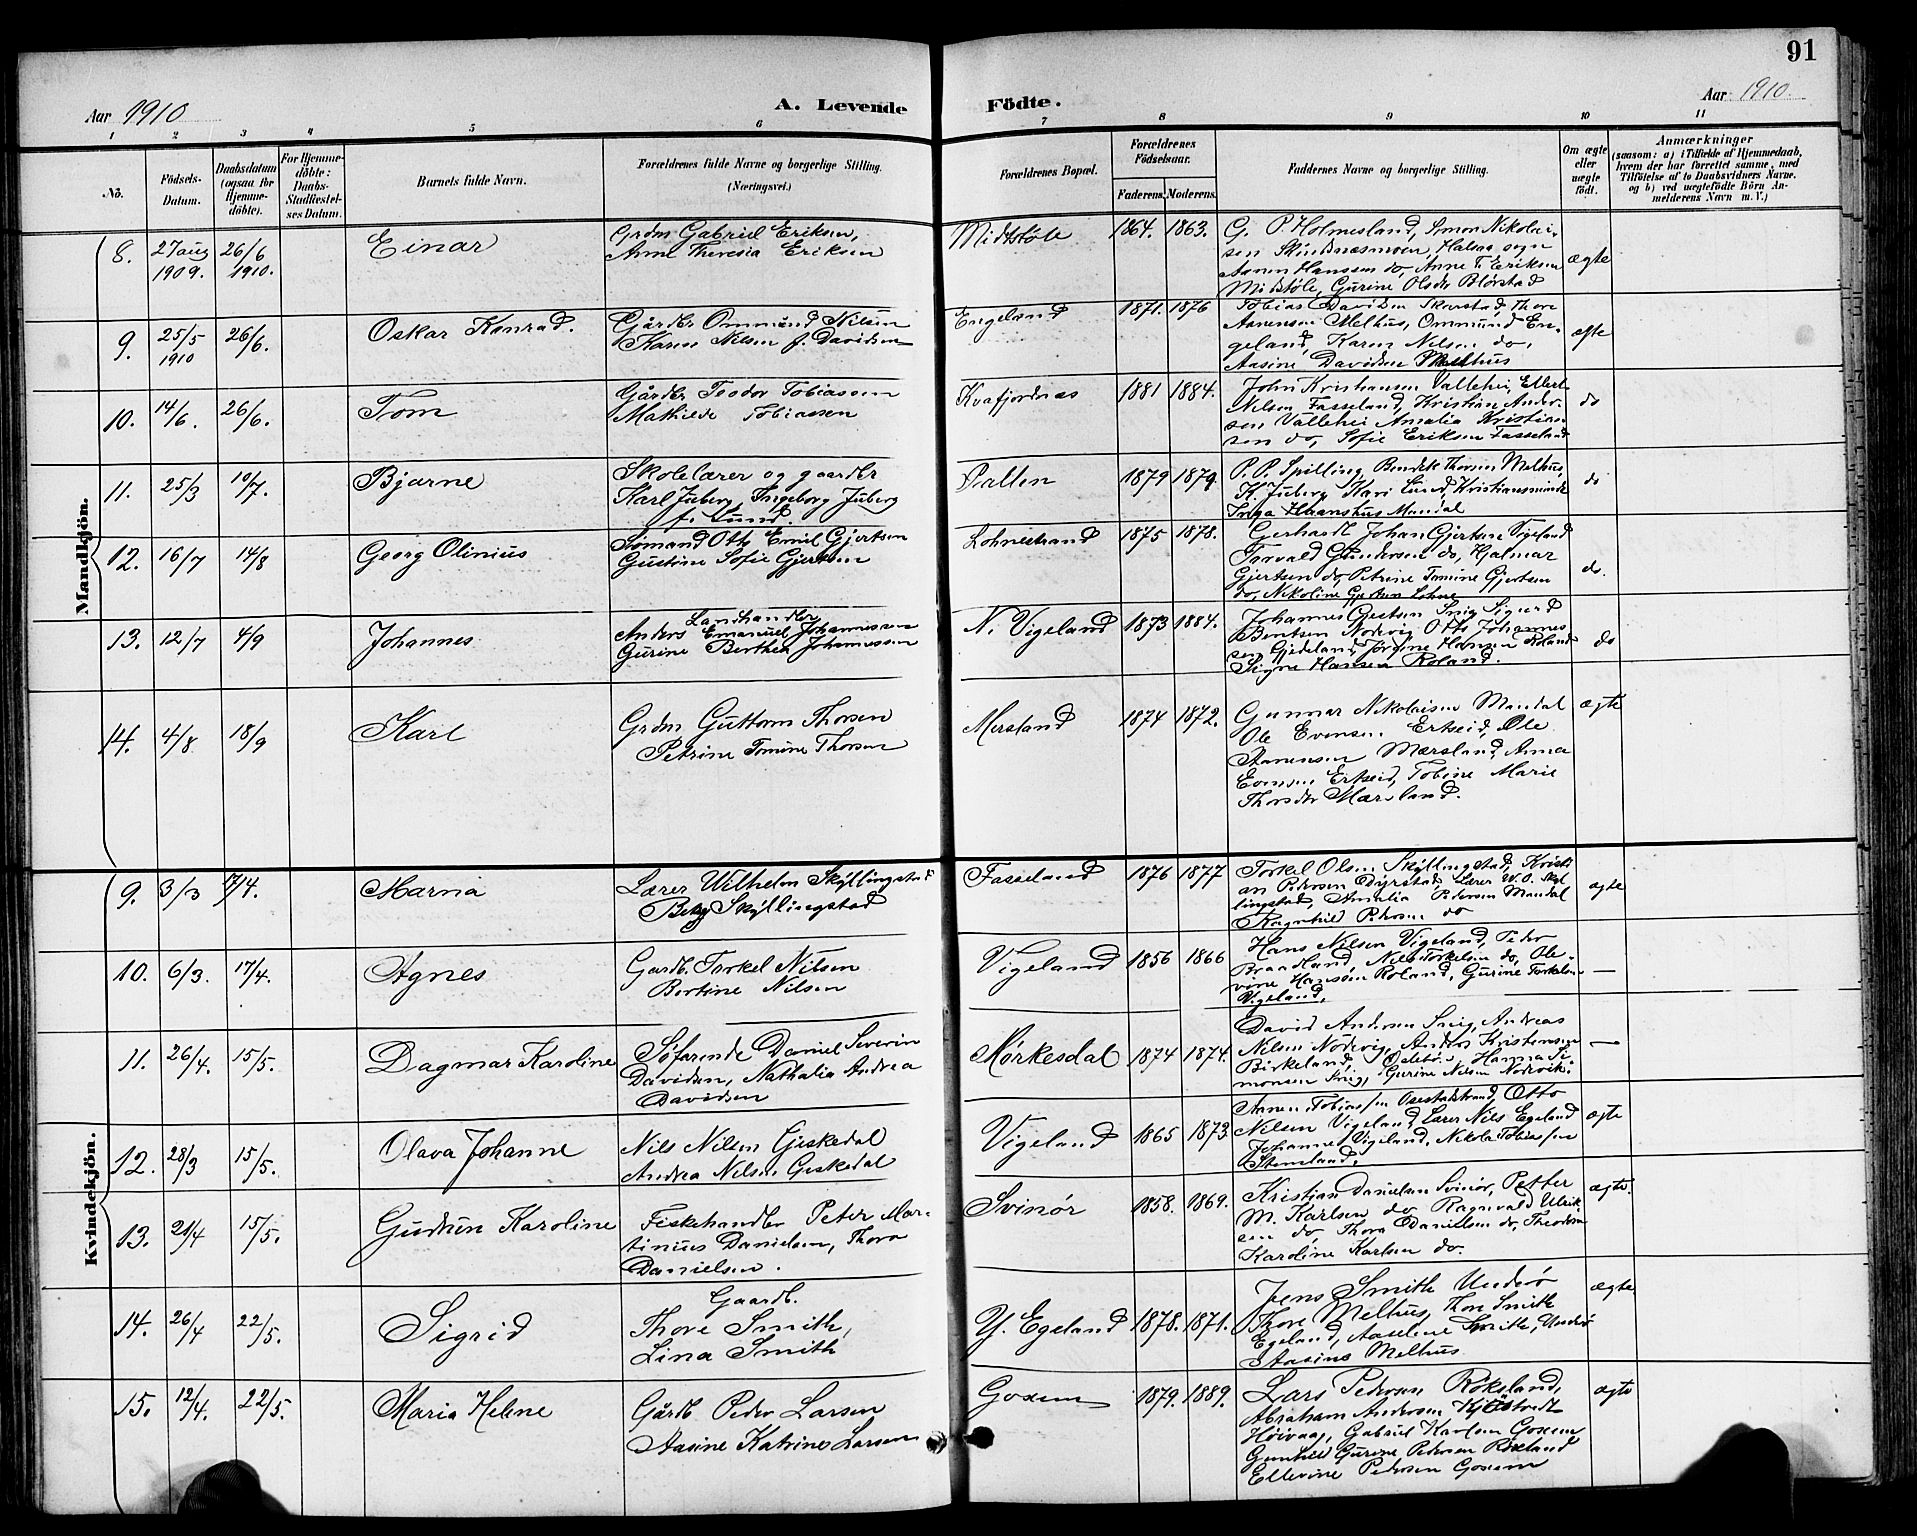 91
Aar 1910
A. Levende Födte.
Aar 1910.
1 2 3 4 5 6 7 8 9 10 11
No.
Födsels-Datum.
Daabsdatum (ogsaa for Hjemme-döbte).
For Hjemme-döbte: Daabs-Stadfæstel-ses Datum.
Barnets fulde Navn.
Forældrenes fulde Navne og borgerlige Stilling.
(Næringsvei.)
Forældrenes Bopæl.
Forældrenes Födselsaar.
Faderens. Moderens.
Faddernes Navne og borgerlige Stilling.
Om ægte eller uægte födt.
Anmærkninger
(saasom: a) i Tilfælde af Hjemmedaab, hvem der har forrettet samme, med Tilföielse af to Daabsvidners Navne, og b) ved uægtefödte Börn An-melderens Navn m. V.)
Mandkjön.
8. 27 aug 1909. 26/6 1910. Einar
Grdm Gabriel Eriksen,
Anne Theresia Eriksen
Midtstøle 1864. 1863.
G. P. Holmesland, Simon Nikolai-
sen Skinsnæsmoen, Halsaa sogn
Aanen Hanssen do, Anne T. Eriksen
Midstøle, Gurine Olsdr Blørstad
ægte
9. 25/5 1910 26/6. Oskar Konrad.
Gårdbr Ommund Nilsen
Karen Nilsen f. Davidsen
Engeland 1871. 1876
Tobias Davidsen Skarstad, Thore
Aanensen Melhus, Ommund En-
geland, Karen Nilsen do,
Aasine Davidsen Melhus
ægte
10. 14/6. 26/6. Tom
Gårdbr Teodor Tobiassen
Mathilde Tobiassen
Kvafjordnes 1881 1884.
John Kristiansen Vallehei, Ellert
Nilsen Fasseland, Kristian Ander-
sen Vallehei Amalia Kristian
sen do, Sofie Eriksen Fasseland
do
11. 25/3 10/7. Bjarne
Skolelærer og gaardbr
Karl Juberg, Ingeborg Juberg
f. Lund.
Valten 1879 1879
P. P. Spilling, Bendik Thorsen Melhus,
K. Juberg Kari Lund, Kristiansminde
Inga Haanshus Mandal
do
12. 16/7 14/8 Georg Olinius
Sømand Otto Emil Gjertsen
Gustine Sofie Gjertsen
Lohnestrand 1875 1878.
Gerhardt Johan Gjertsen Vigeland
Torvald Gundersen do, Hjalmar
Gjertsen do, Petrine Tomine Gjertsen
do, Nikoline Gjertsen Lohne
do.
13. 12/7 4/9 Johannes
Landhandler
Anders Emanuel Johannessen
Gurine Berthea Johannessen
N. Vigeland 1873 1884.
Johannes Gjertsen Snig Sigurd
Bentsen Nodevig Otto Johannes
sen Gjedeland, Jørgine Hansen Roland
Signe Hansen Roland.
do
14. 4/8 18/9 Karl
Grdm Guttorm Thorsen
Petrine Tomine Thorsen
Mersland 1874 1872.
Gunnar Nikolaisen Mandal
Ole Evensen Ertseid, Ole
Aanensen Mærsland, Anna
Evensen Ertseid, Tobine Marie
Thorsdtr Mærsland.
ægte
Kvindekjön.
9. 3/3 7/4. Marna
Lærer Wilhelm Skjllingstad
Betzy Skjllingstad
Fasseland 1876 1877
Torkel Olsen Skjllingstad, Kristi
an Pedersen Dyrstad, Lærer W. O. Skjl
lingstad, Amalia Pedersen Mandal
Ragnhild Pedersen do
ægte
10. 6/3. 17/4. Agnes
Gardb. Torkel Nilsen
Bertine Nilsen
Vigeland 1856 1866
Hans Nilsen Vigeland, Peder
Braadland, Nils Torkelsen do, Ole-
vine Hanssen Roland, Gurine Torkelsen
Vigeland.
—
11. 26/4. 15/5. Dagmar Karoline
Søfarende Daniel Severin
Davidsen, Nathalia Andrea
Davidsen
Mørkesdal 1874 1874.
David Andersen Snig, Andreas
Nilsen Nodevig, Anders Kristensen
Birkeland, Hanna Si
monsen Snig, Gurine Nilsen Nodevik.
—
12. 28/3 15/5. Olava Johanne
Nils Nilsen Gjeskedal
Andrea Nilsen Geskedal
Vigeland 1865 1873
Aanen Tobiassen Osestadstrand, Otto
Nilsen Vigeland, Lærer Nils Egeland
Johanne Vigeland, Nikolai Tobiassen
Stensland.
ægte
13. 21/4 15/5. Gudrun Karoline
Fiskehandler Peter Mar-
tinius Danielsen, Thora
Danielsen.
Svinør 1858. 1869.
Kristian Danielsen Svinør, Petter
M. Karlsen do Ragnvald Ulrik
sen do, Thora Danielsen do, Theodora
Karoline Karlsen do.
ægte.
14. 26/4 22/5. Sigrid
Gaardb.
Thore Smith,
Lina Smith
Y. Egeland 1878. 1871.
Jens Smith Underø
Thore Melhus, Thore Smith
Egeland, Aaselene Smith, Underø
Aasine Melhus
ægte
15. 12/4. 22/5. Maria Helene
Gårdb Peder Larsen
Aasine Katrine Larsen
Goxem 1879. 1889.
Lars Pedersen Röksland,
Abraham Andersen
Høivaag, Gabriel Karlsen Goxem
Gunhild Gurine Pedersen Röxland
Ellevine Pedersen Goxem
ægte